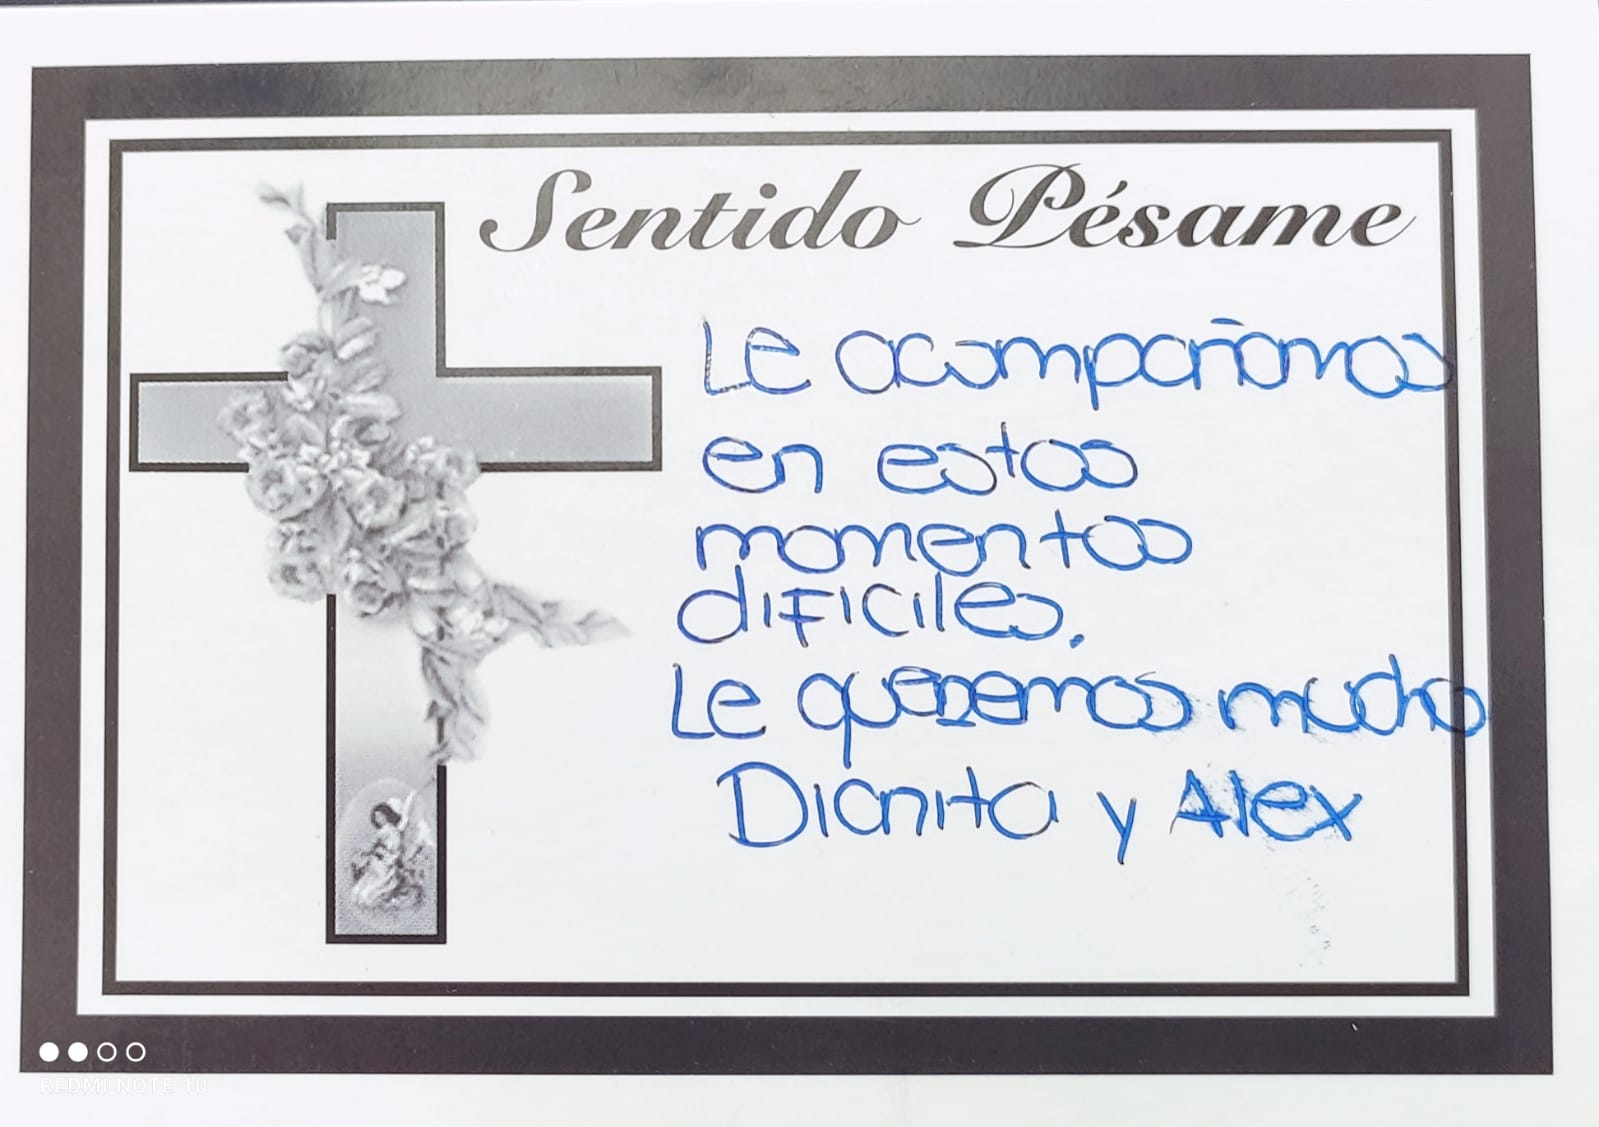 Sentido Pésame
Le acompañamos
en estos
momentos
dificiles.
Le queremos mucho
Dianita y Alex
REDMI NOTE 10